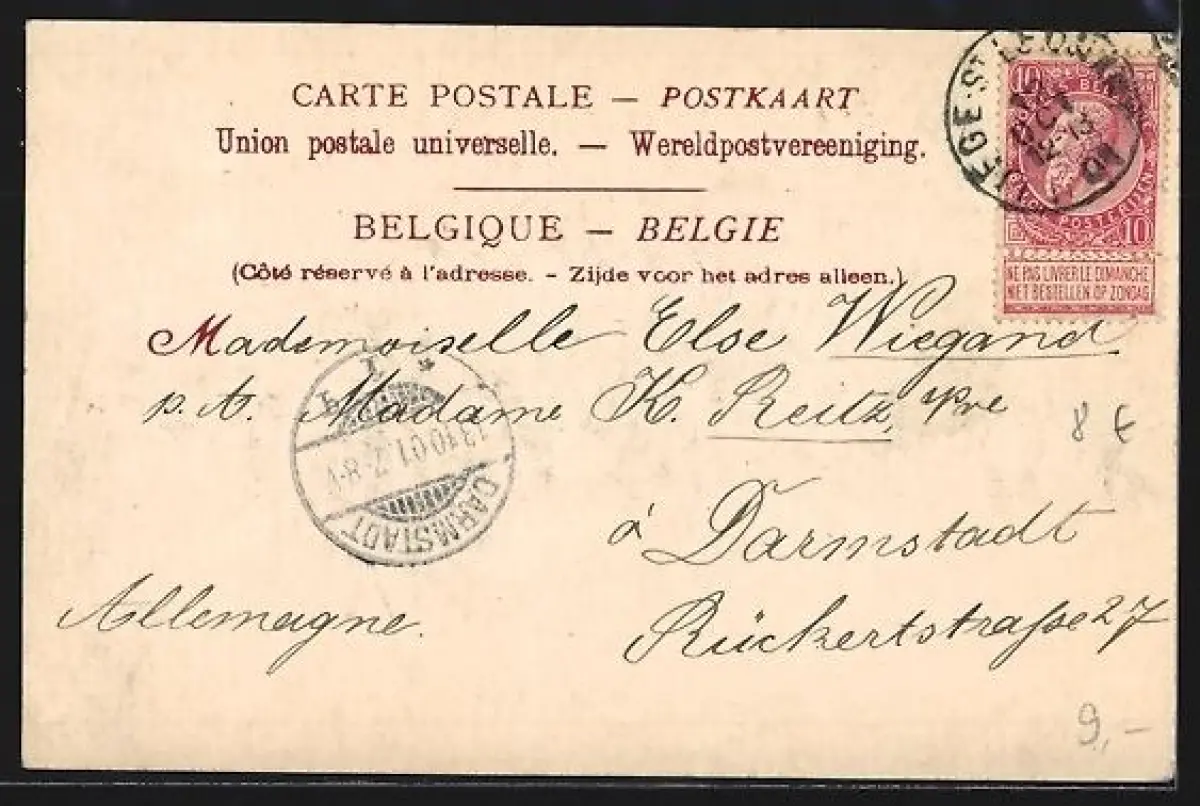 CARTE POSTALE — POSTKAART
Union postale universelle. — Wereldpostvereeniging.
BELGIQUE — BELGIE
(Côté réservé à l'adresse. - Zijde voor het adres alleen.)
10 10
POSTERIJEN
10
NE PAS LIVRER LE DIMANCHE
NIET BESTELLEN OP ZONDAG
12-13
01
Mademoiselle Else Wiegand
p. A. Madame K. Reitz,
DARMSTADT
13.10.01. 7-8 V
8 €
à Darmstadt
Allemagne.
Rückertstraße 27
9,-